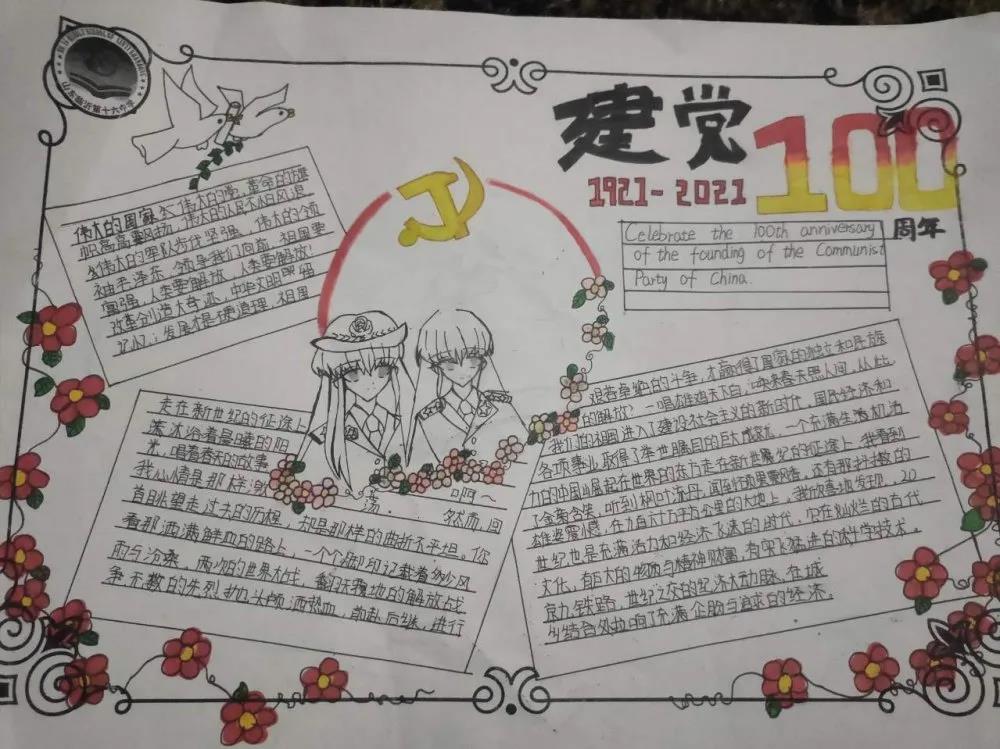 山东临沂第十六中学
建党100周年
1921-2021
Celebrate the 100th anniversary
of the founding of the Communist
Party of China.
伟大的国家,伟大的党,革命的旗
帜高高飘扬,伟大的人民不怕风浪
伟大的军队为任坚强,伟大的领
袖毛泽东,领导我们向前,祖国要
富强,人类要解放,人类要解放!
改革创造大奇迹,
发展才是硬道理,祖国
走在新世纪的征途上
沐浴着晨曦的阳
光,唱着春天的故事
我心情是那样激
荡。 啊~ 然而,回
首眺望走过去的历程,却是那样的曲折不平坦。你
看那洒满鲜血的路上,一个个脚印记载着多少风
雨与沧桑,两次的世界大战,翻天覆地的解放战
争无数的先烈抛头颅洒热血,前赴后继,进行
艰苦卓绝的斗争,才赢得了国家的独立和民族
的解放!一唱雄鸡天下白,唤来春天思人间,从此
我们的祖国进入了建设社会主义的新时代,国民经济和
各项事业取得了举世瞩目的巨大成就,一个充满生活和活
力的中国崛起在世界的东方走在新世纪的征途上,我看到
了金菊含笑,听到枫叶流丹,闻到了硕果飘香,还有那抖擞的
雄姿,在九百六十万平方公里的大地上,我欣喜地发现,20
世纪也是充满活力和经济飞速的时代,它在灿烂的古代
文化,有巨大的物质与精神财富,有突飞猛进的科学技术。
京九铁路,世纪之交的经济大动脉,在城
乡结合处拉响了充满企盼与追求的经济。